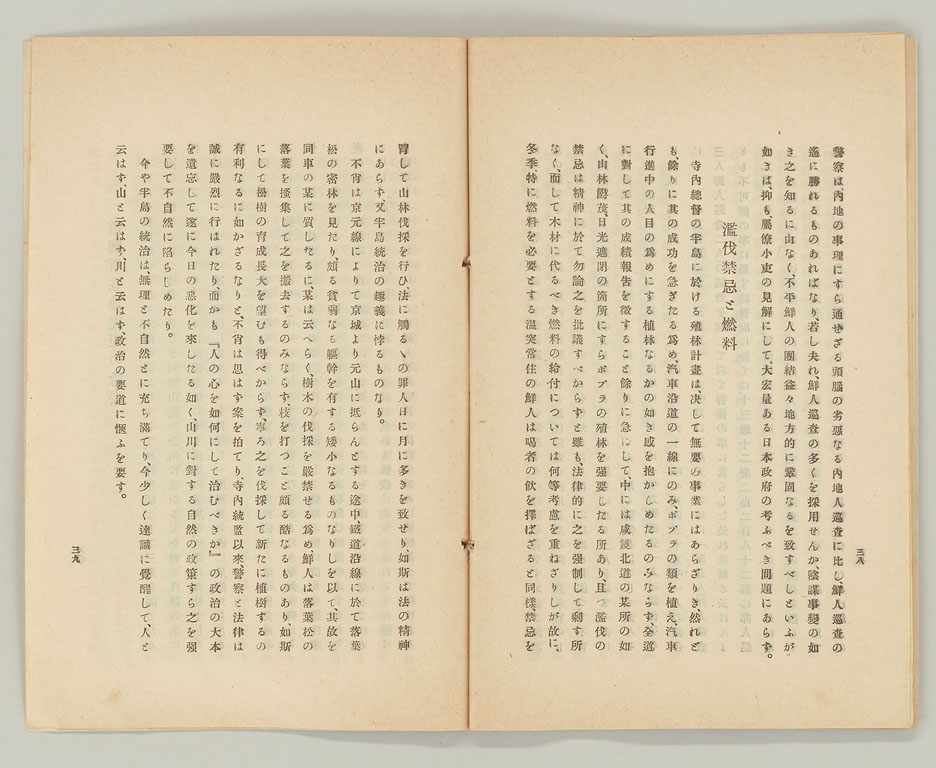 警察は、內地の事理にすら通ぜざる頭腦の劣惡なる內地人巡査に比し、鮮人巡査の
遙に勝れるものあればなり、若し夫れ、鮮人巡査の多くを採用せんか、陰謀事變の如
き之を知るに由なく、不平鮮人の團結益々地方的に鞏固なるを致すべしといふが
如きは、抑も、屬僚小吏の見解にして、大宏量ある日本政府の考ふべき問題にあらず。
濫伐禁忌と燃料
寺內總督の半島に於ける殖林計畫は決して無要の事業にはあらざりき、然れど
も、餘りに其の成功を急ぎたる爲め、汽車沿道の一線にのみ、ポプラの類を植え、汽車
行進中の人目の爲めにする植林なるかの如き感を抱かしめたるのみならず、全道
に對して其の成績報告を徵すること餘りに急にして、中には咸鏡北道の某所の如
く、山林欝茂、日光遮閉の箇所にすらポプラの殖林を强要したる所あり、且つ濫伐の
禁忌は精神に於て勿論之を批議すべからずと雖も、法律的に之を强制して剩す所
なく、而して木材に代るべき燃料の給付については何等考慮を重ねざりしが故に、
冬季、特に燃料を必要とする溫突常住の鮮人は渴者の飮を擇ばざると同樣、禁忌を
三八
冐して山林伐採を行ひ法に觸るゝの罪人日に月に多きを致せり、如斯は法の精神
にあらず、又半島統治の趣義に悖るものなり。
不肖は京元線によりて京城より元山に抵らんとする途中、鐵道沿線に於て落葉
松の密林を見たり、頗る貧弱なる軀幹を有する矮小なるものなりしを以て、其故を
同車の某に質したるに、某は云へらく、樹木の伐採を嚴禁せる爲め、鮮人は落葉松の
落葉を搔集して之を撤去するのみならず、枝を打つこと頗る酷なるものあり、如斯
にして松樹の育成長大を望むも得べからず、寧ろ之を伐採して新たに植樹するの
有利なるに如かざるなりと、不肖は思はず案を拍てり、寺內統監以來、警察と法律は
誠に嚴烈に行はれたり、而かも『人の心を如何にして治むべきか』の政治の大本
を遺忘して遂に今日の惡化を來したる如く、山川に對する自然の政策すら之を强
要して不自然に陷らしめたり。
今や半島の統治は、無理と不自然とに充ち滿てり、今少しく達識に覺醒して、人と
云はず、山と云はず川と云はず、政治の要道に愜ふを要す。
三九